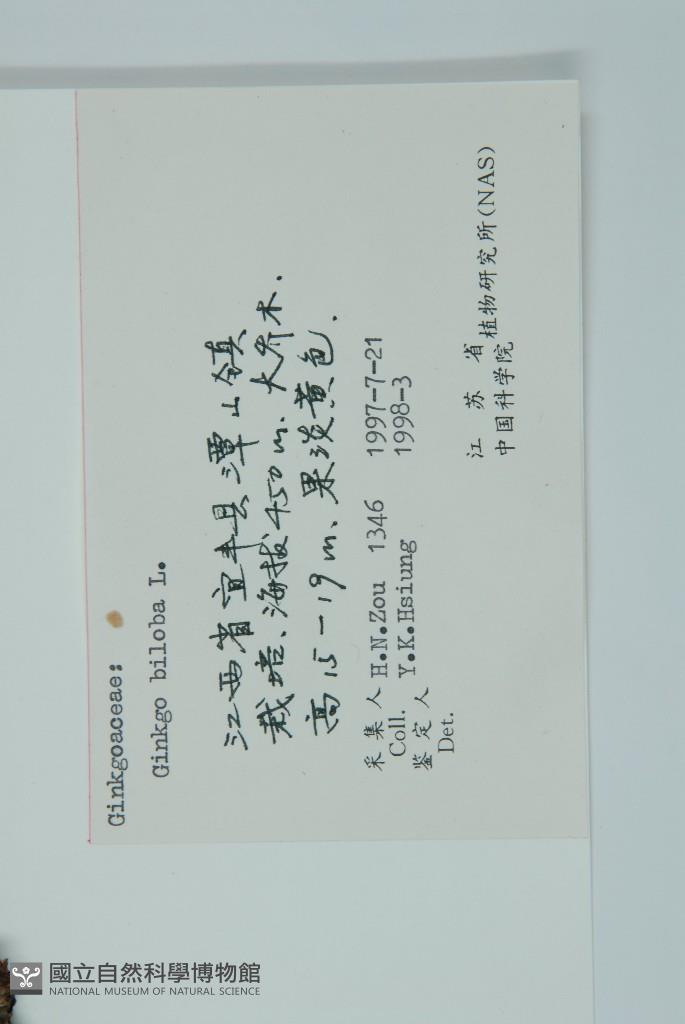 Ginkgoaceae:
Ginkgo biloba L.
江西省宜丰县潭山镇
栽培、海拔450m、大乔木.
高15-19m、果淡黄色.
采集人 H.N.Zou 1346 1997-7-21
Coll.
鉴定人 Y.K.Hsiung 1998-3
Det.
江苏省
中国科学院 植物研究所(NAS)
國立自然科學博物館
NATIONAL MUSEUM OF NATURAL SCIENCE